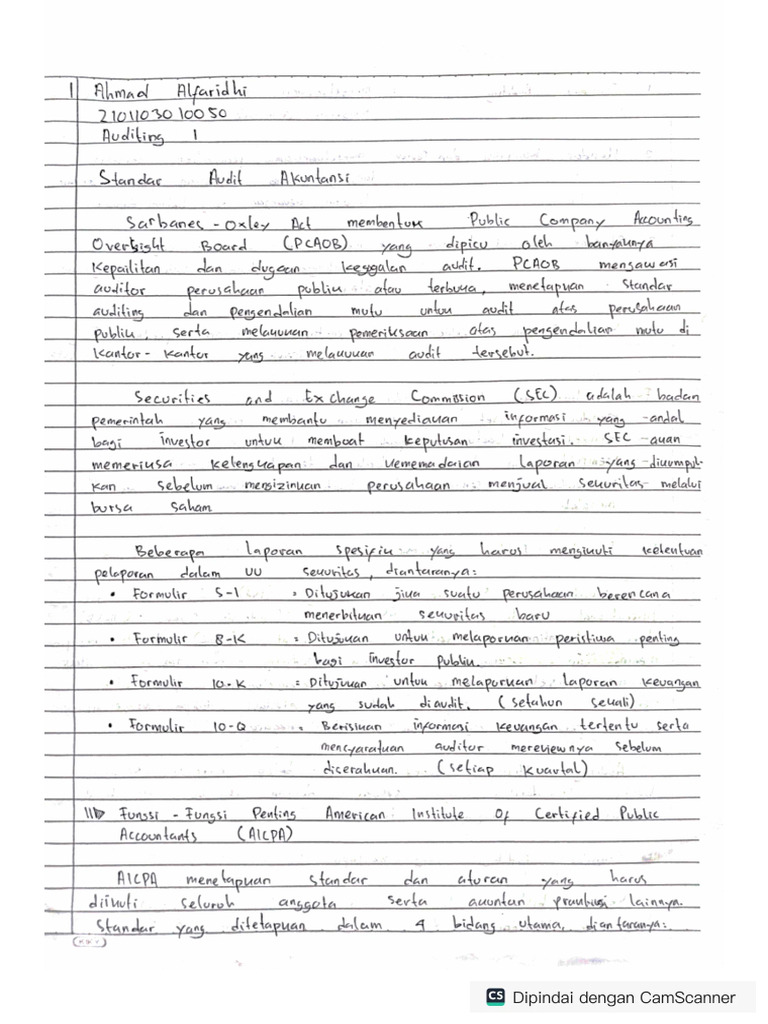 1 Ahmad Alfaridhi
210110301 0050
Auditing 1
Standar Audit Akuntansi
Sarbanes - Oxley Act membentuk Public Company Accounting
Oversight Board (PCAOB) yang dipicu oleh banyaknya
kepailitan dan dugaan kegagalan audit. PCAOB mengawasi
auditor perusahaan publik atau terbuka, menetapkan standar
auditing dan pengendalian mutu untuk audit atas perusahaan
publik, serta melakukan pemeriksaan atas pengendalian mutu di
kantor - kantor yang melakukan audit tersebut.
Securities and Exchange Commission (SEC) adalah badan
pemerintah yang membantu menyediakan informasi yang andal
bagi investor untuk membuat keputusan investasi. SEC akan
memeriksa kelengkapan dan kememadaian laporan yang dikumpul-
kan sebelum mengizinkan perusahaan menjual sekuritas melalui
bursa saham
Beberapa laporan spesifik yang harus mengikuti ketentuan
pelaporan dalam UU sekuritas, diantaranya:
• Formulir S-1 : Ditujukan jika suatu perusahaan berencana
menerbitkan sekuritas baru
• Formulir 8-K : Ditujukan untuk melaporkan peristiwa penting
bagi investor publik.
• Formulir 10-K : Ditujukan untuk melaporkan laporan keuangan
yang sudah diaudit. (setahun sekali)
• Formulir 10-Q : Berisikan informasi keuangan tertentu serta
mensyaratkan auditor mereviewnya sebelum
diserahkan. (setiap kuartal)
Fungsi - Fungsi Penting American Institute Of Certified Public
Accountants (AICPA)
AICPA menetapkan standar dan aturan yang harus
diikuti seluruh anggota serta akuntan praktisi lainnya.
Standar yang ditetapkan dalam 4 bidang utama, diantaranya:
CS Dipindai dengan CamScanner